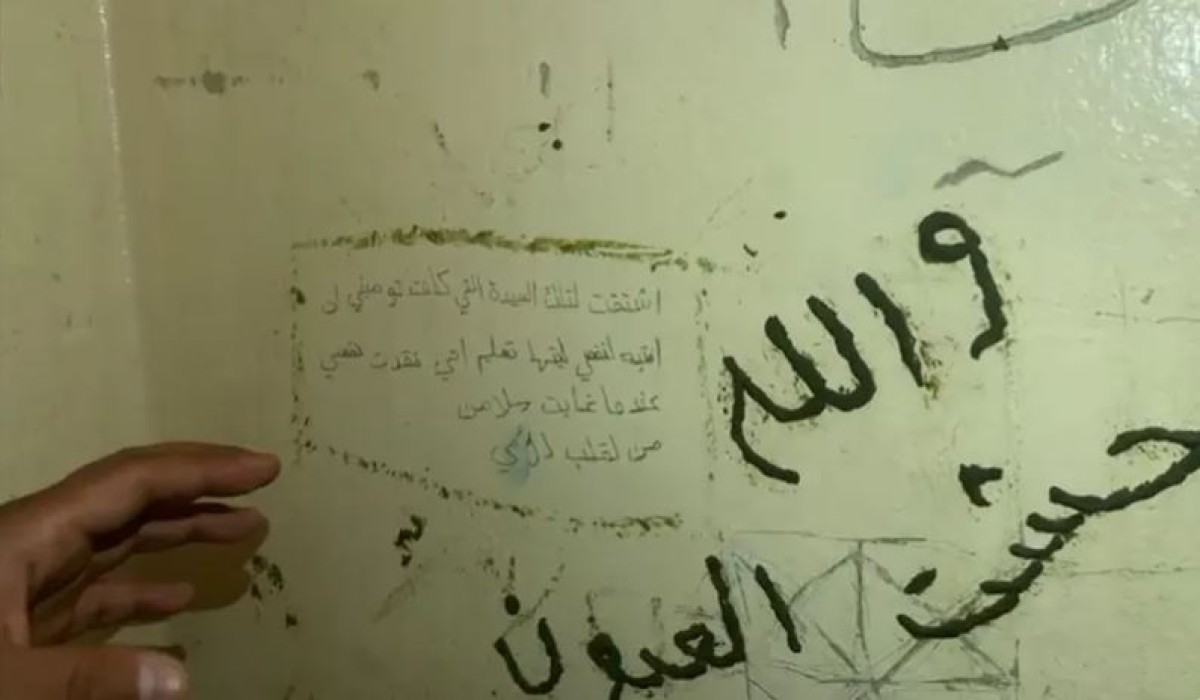 اشتقت لتلك السيدة التي كانت توصيني ان
انتبه لنفسي ليتها تعلم اني فقدت نفسي
عندما غابت
من لقلب
والله
العيون